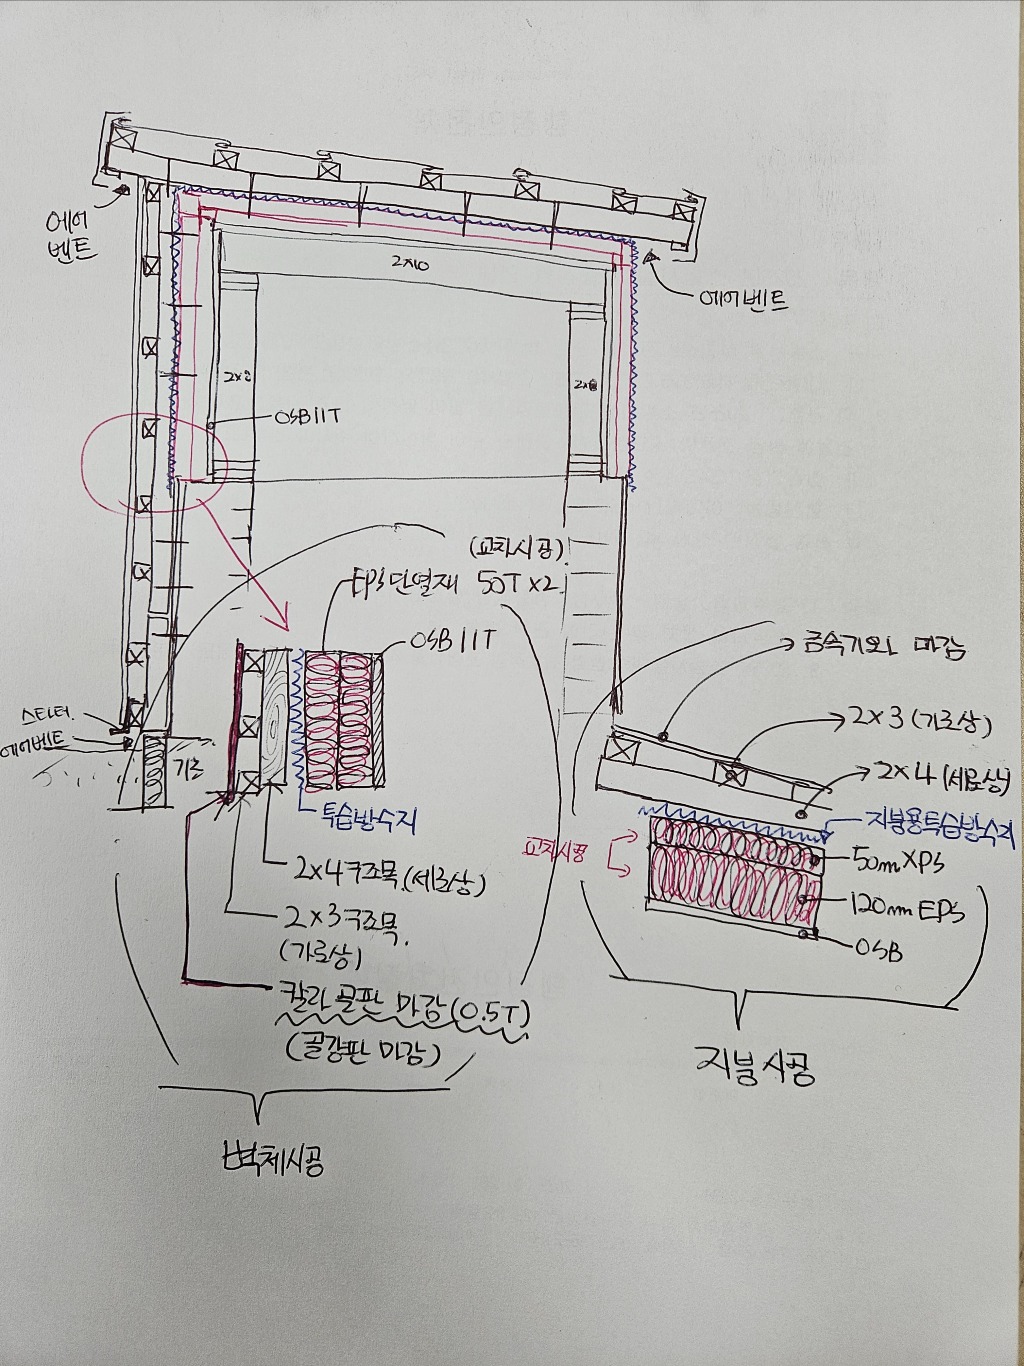 에어
벤트
에어벤트
2x10
2x8
2x8
OSB 11T
(교차시공)
EPS 단열재 50T x2
OSB 11T
스타터
에어벤트
기초
투습방수지
2x4 구조목 (세로상)
2x3 구조목
(가로상)
칼라 골판 마감 (0.5T)
(골강판 마감)
벽체시공
금속기와 마감
2x3 (가로상)
2x4 (세로상)
지붕용투습방수지
교차시공
50m XPS
120mm EPS
OSB
지붕시공